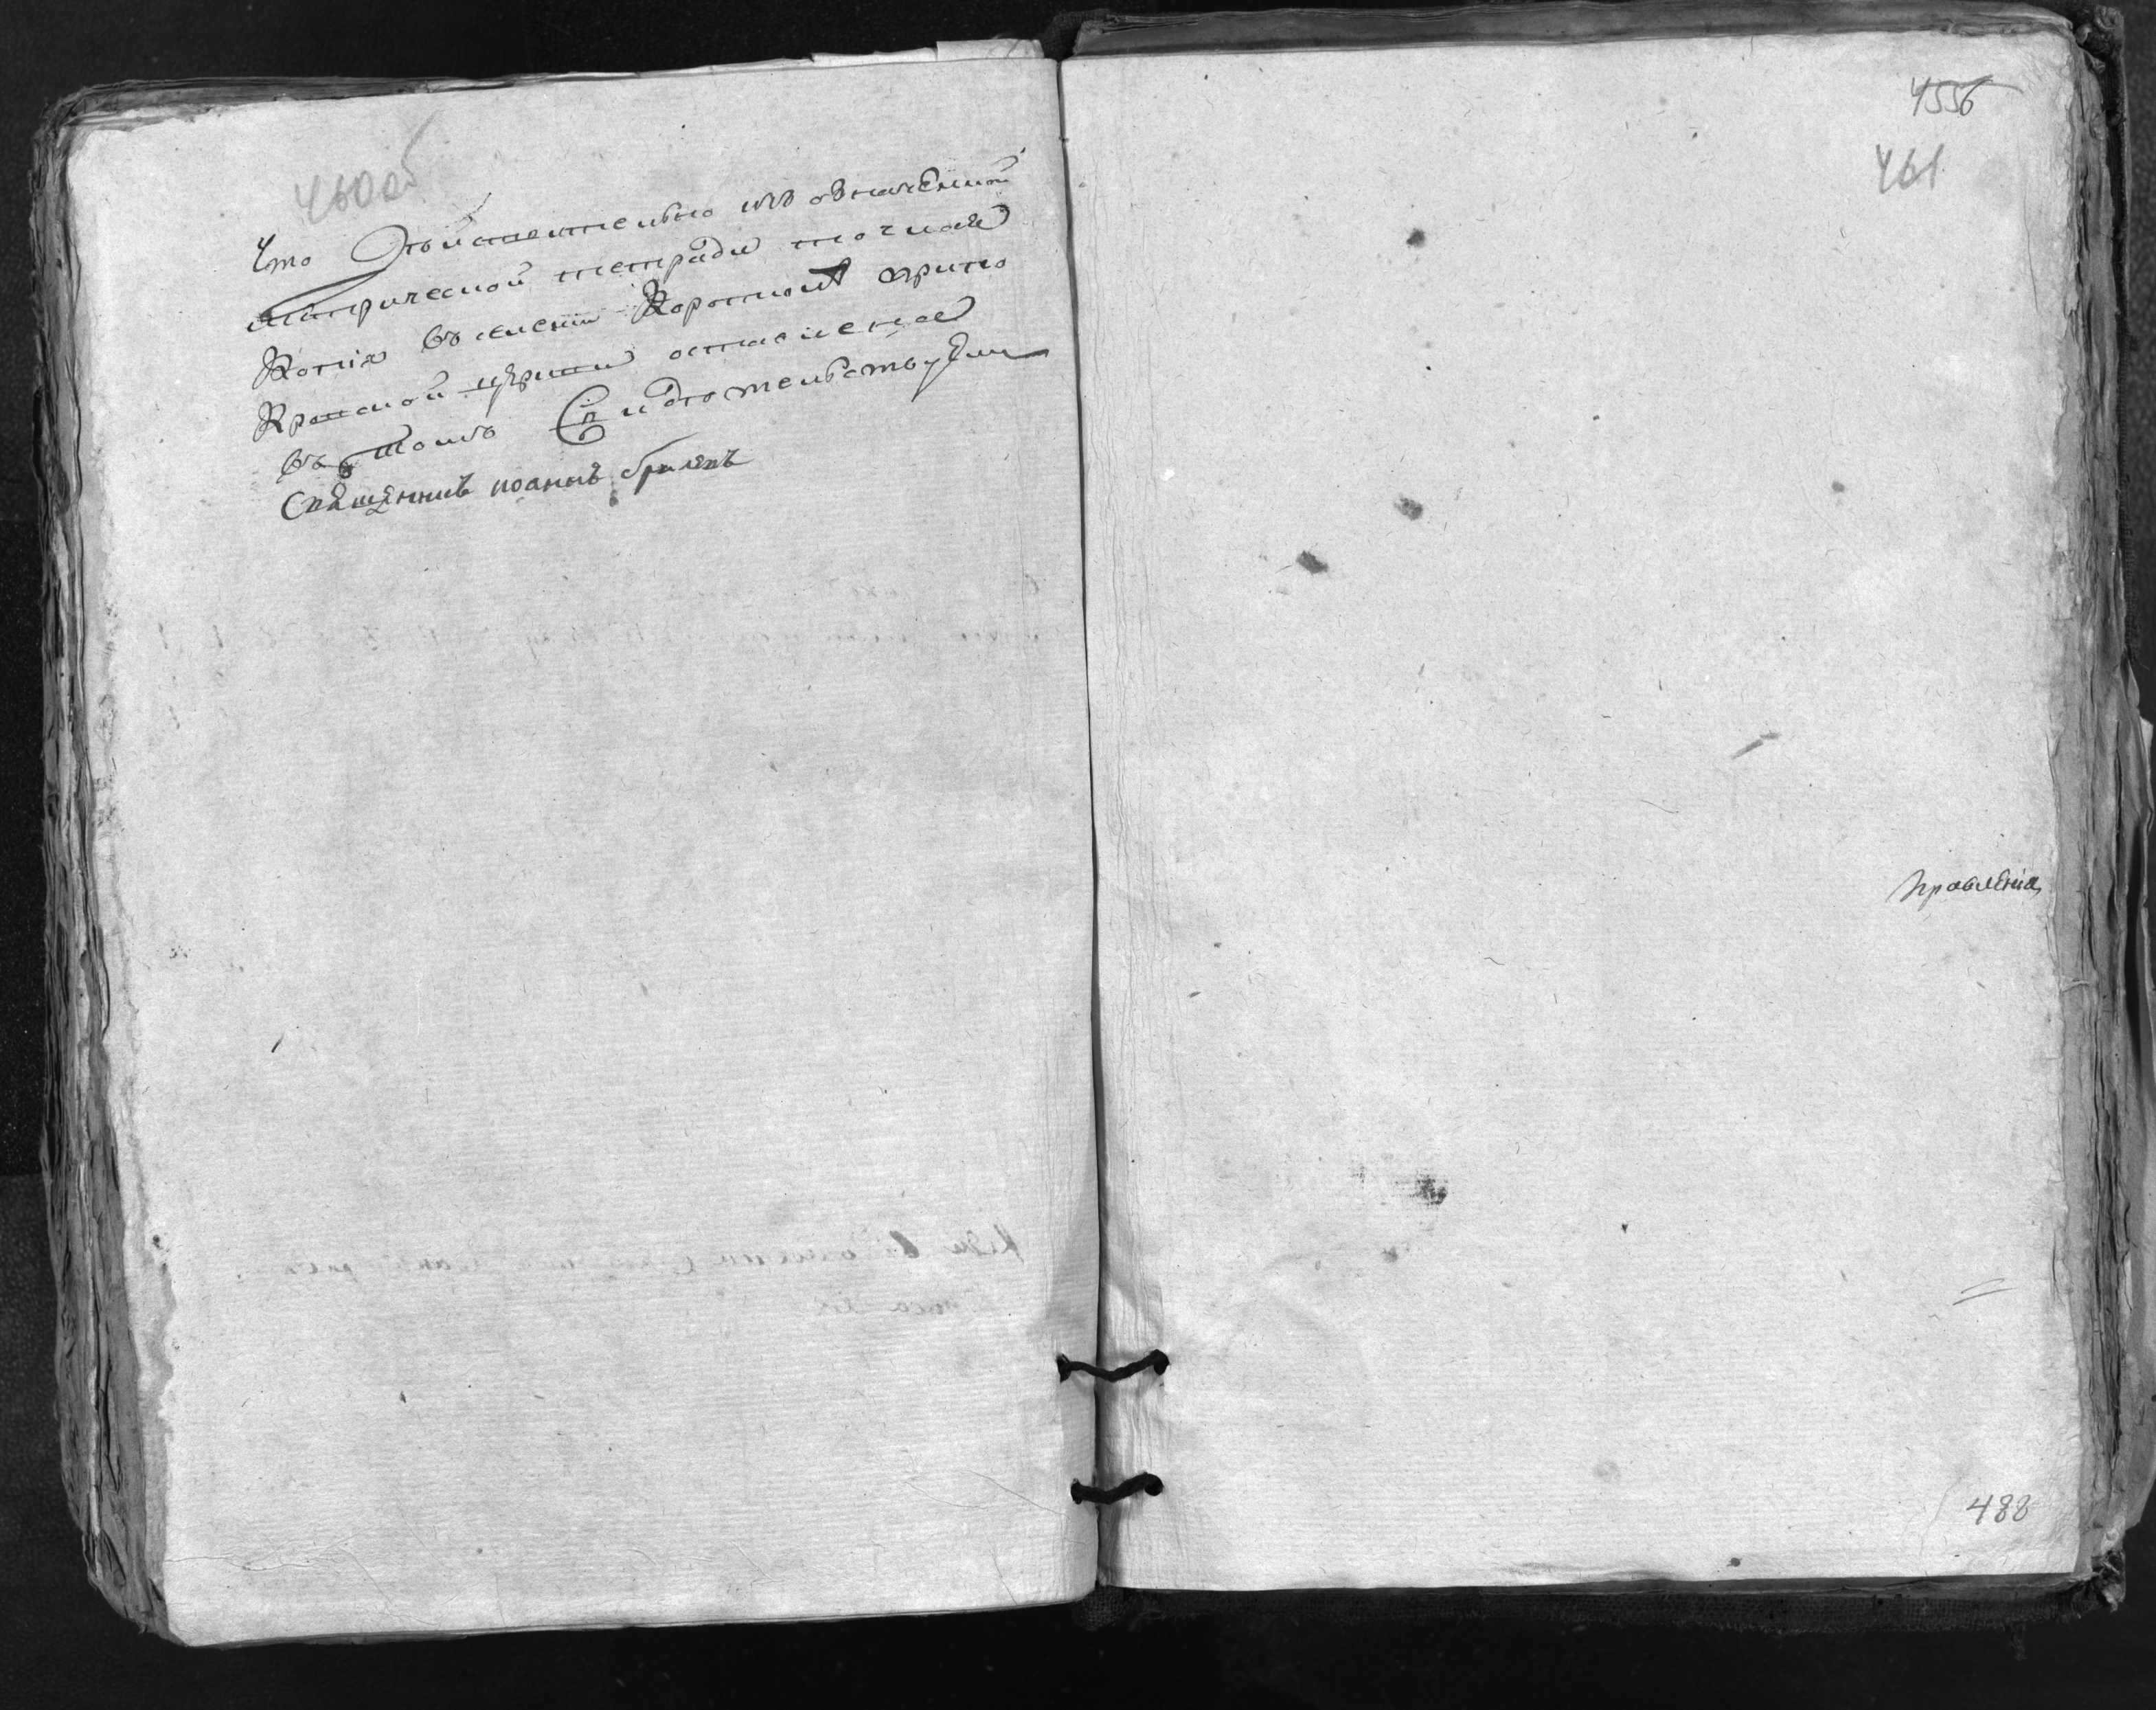 460об
Что Дѣйствительно изъ означенной
метрической тетради точная
Копія въ селеніи Коротномъ при по
Кровской церкви оставлена
въ томъ Свидѣтельствуемъ
Священникъ иоаннъ
4556
461
правленія
488